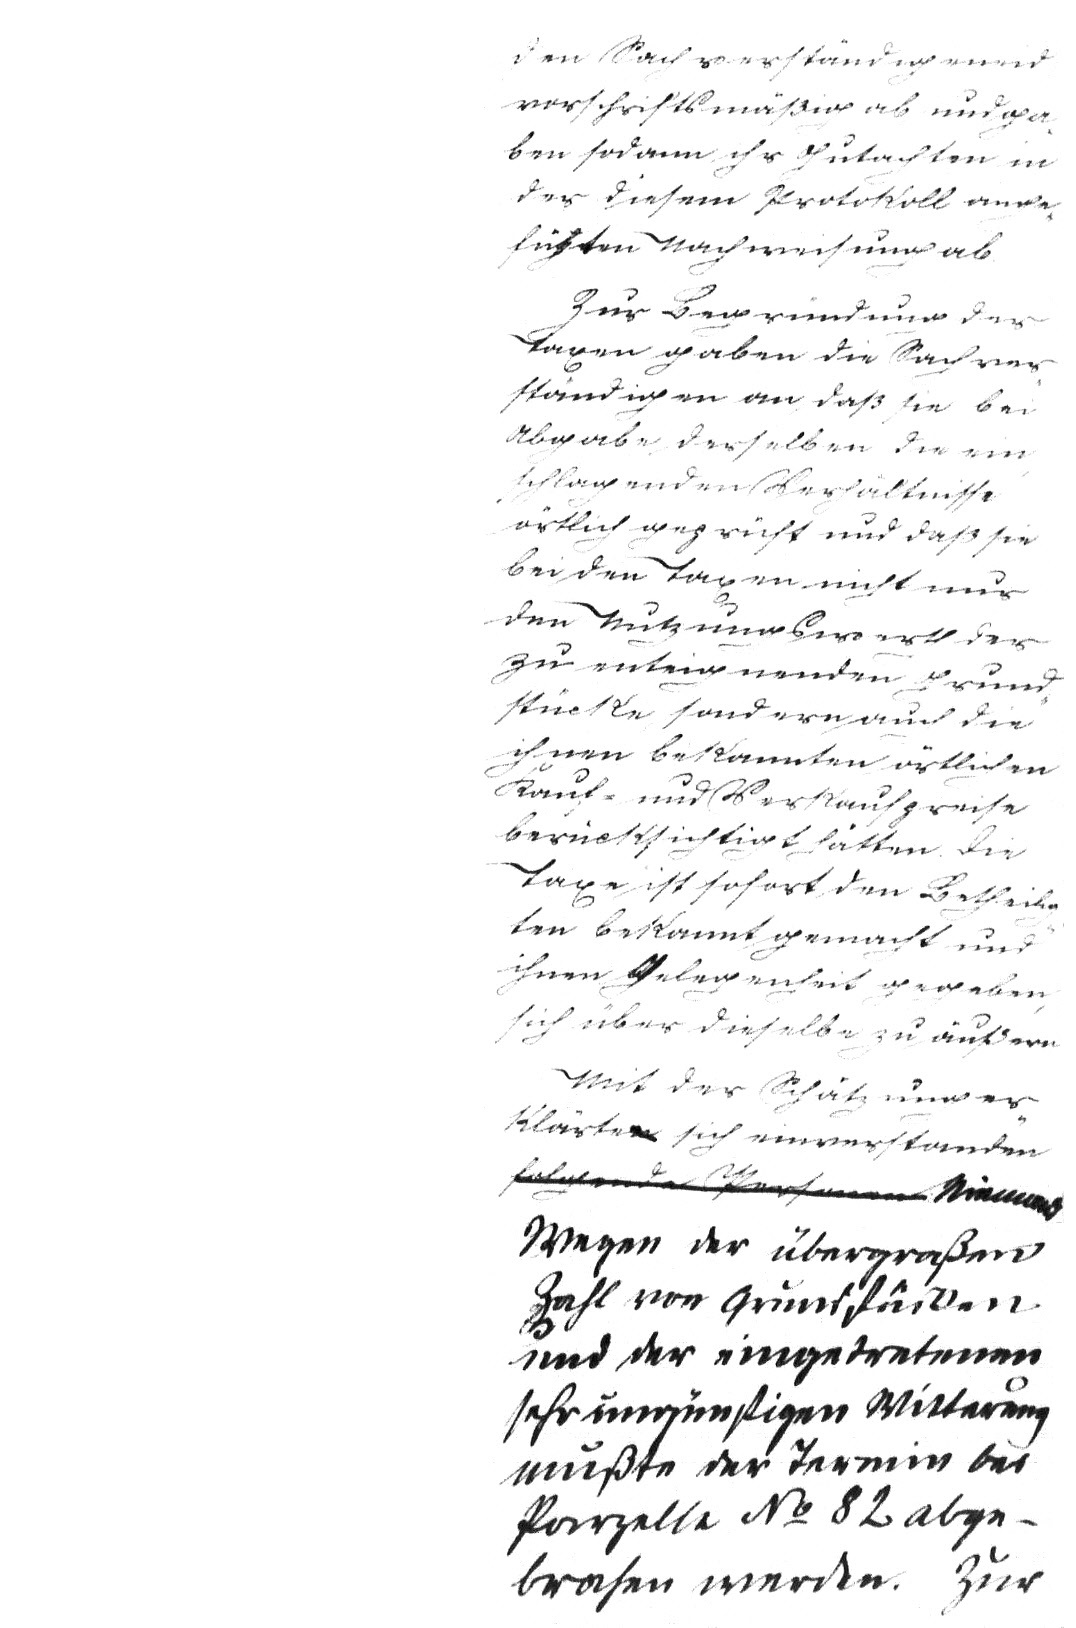 den Sachverständigeneid
vorschriftsmäßig ab und ga-
ben sodann ihr Gutachten in
der diesem Protokoll ange-
fügten Nachweisung ab
Zur Begründung der
Taxen gaben die Sachver
ständigen an, daß sie bei
Abgabe derselben die ein
schlagenden Verhältnisse
örtlich geprüft und daß sie
bei den Taxen nicht nur
den Nutzungswerth der
zu enteignenden Grund-
stücke sondern auch die
ihnen bekannten örtlichen
Kauf- und Verkaufpreise
berücksichtigt hätten. Die
Taxe ist sofort den Betheilig
ten bekannt gemacht und
ihnen Gelegenheit gegeben,
sich über dieselbe zu äußern
Mit der Schätzung er
klärte sich einverstanden
folgende Personen Niemand
Wegen der übergroßen
Zahl von Grundstücken
und der eingetretenen
sehr ungünstigen Witterung
mußte der Termin bei
Parzelle No 82 abge-
brochen werden. Zur